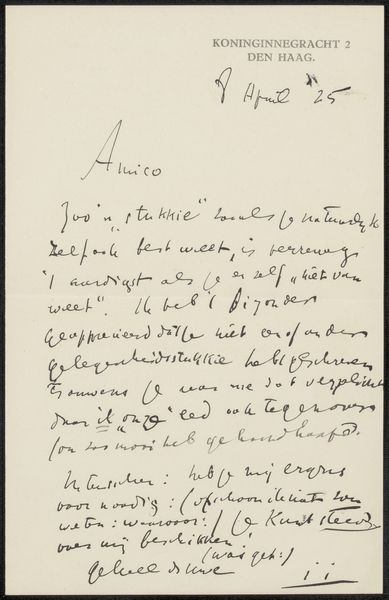 KONINGINNEGRACHT 2
DEN HAAG.
8 April '25
Amico
Zoo 'n "stukkie" zooals je natuurlijk
zelf ook best weet, is verreweg
't aardigst als je er zelf "niet van
weet". Ik heb 't bizonder
geapprecieerd dat je niet een of ander
gelegenheidsstukkie hebt geschreven
Trouwens je was me dat verplicht
daar ik "onze" eed ook tegenover
jou zoo mooi heb gehandhaafd.
Intusschen: heb je mij ergens
voor noodig: (ofschoon ik niet zou
weten: waarvoor:) Je kunt steeds
over mij beschikken!
(was get:)
geheel de uwe